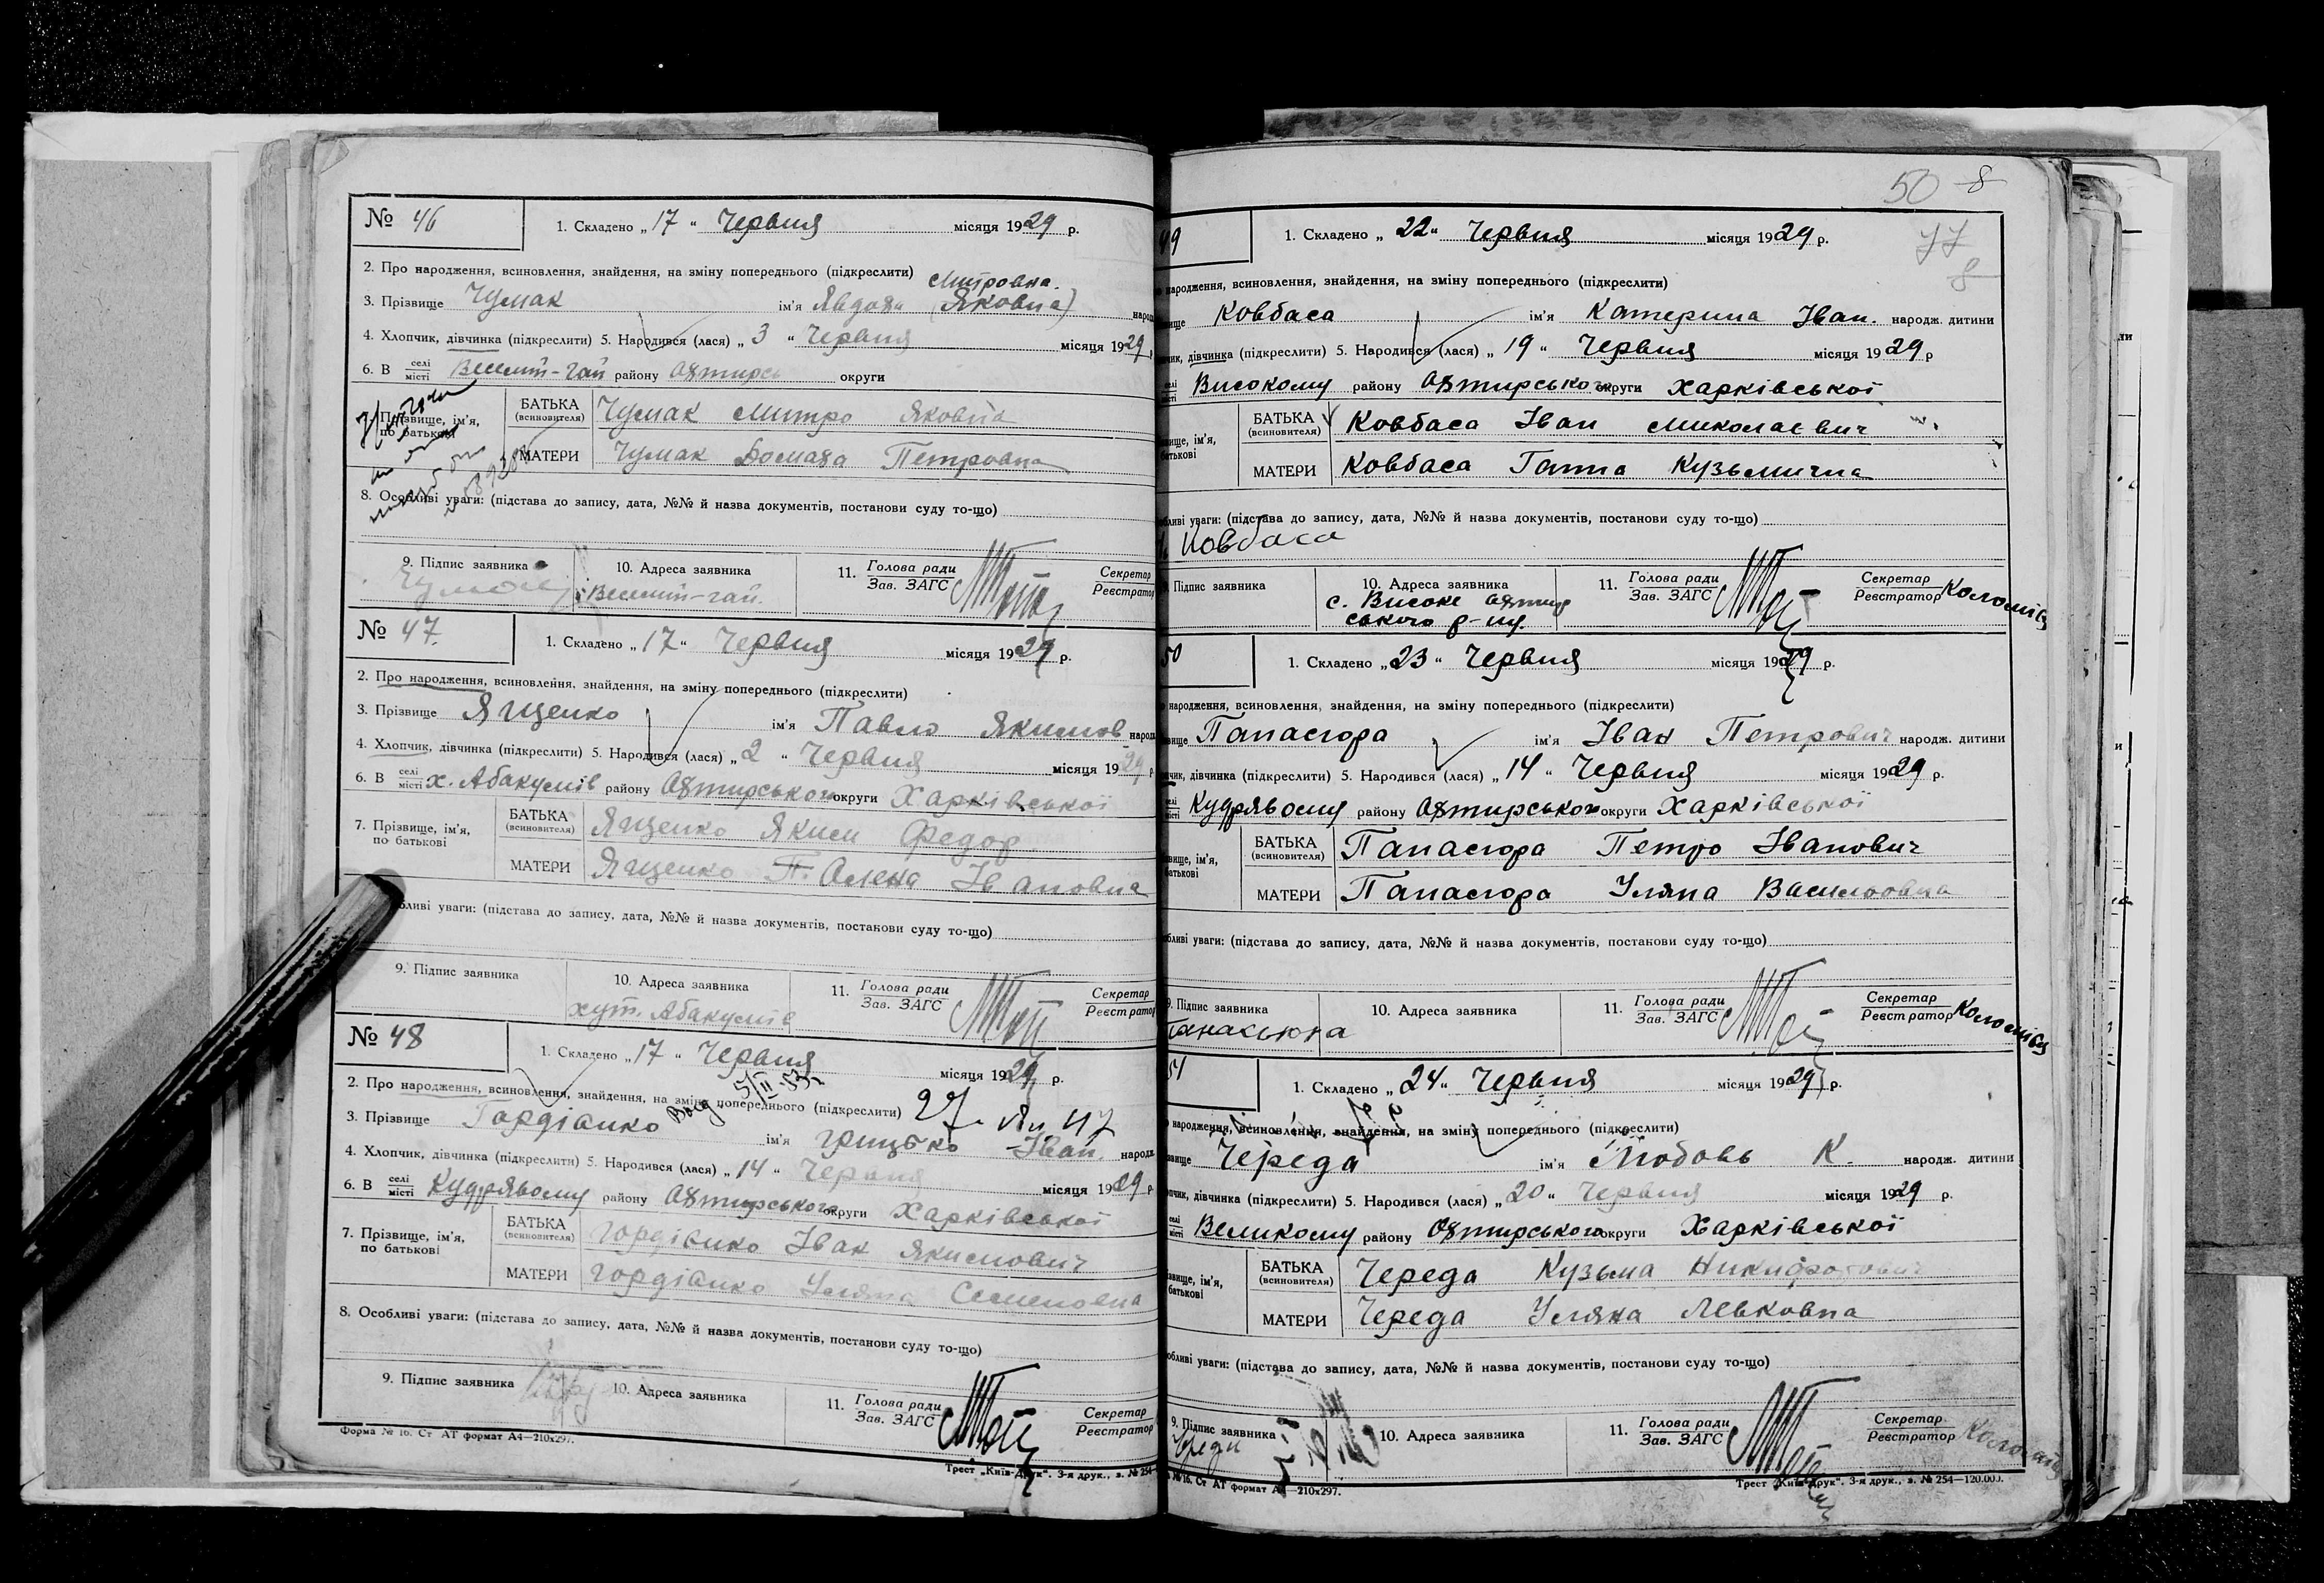 № 46
1. Складено „17“ Червня місяця 1929 р.
2. Про народження, всиновлення, знайдення, на зміну попереднього (підкреслити)
Митровна.
3. Прізвище Чумак ім'я Явдоха (Яковна)
4. Хлопчик, дівчинка (підкреслити) 5. Народився (лася) „3“ Червня місяця 1929
6. В селі місті Веселий-гай району Охтирсь округи
Прізвище, ім'я, по батькові
БАТЬКА (всиновителя) Чумак Митро Яковна
МАТЕРИ Чумак Домаха Петровна
8. Особливі уваги: (підстава до запису, дата, №№ й назва документів, постанови суду то-що)
9. Підпис заявника 10. Адреса заявника 11. Голова ради Зав. ЗАГС Секретар Реєстратор
Веселий-гай.
№ 47.
1. Складено „17“ Червня місяця 1929 р.
2. Про народження, всиновлення, знайдення, на зміну попереднього (підкреслити)
3. Прізвище Ященко ім'я Павло Якимов
4. Хлопчик, дівчинка (підкреслити) 5. Народився (лася) „2“ Червня місяця 1929
6. В селі місті х. Абакумів району Охтирського округи Харківської
7. Прізвище, ім'я, по батькові
БАТЬКА (всиновителя) Ященко Яким Федор
МАТЕРИ Ященко П. Олена Івановна
уваги: (підстава до запису, дата, №№ й назва документів, постанови суду то-що)
9. Підпис заявника 10. Адреса заявника 11. Голова ради Зав. ЗАГС Секретар Реєстратор
хут. Абакумів
№ 48
1. Складено „17“ Червня місяця 1929 р.
2. Про народження, всиновлення, знайдення, на зміну попереднього (підкреслити)
3. Прізвище Гордіенко ім'я Грицько Іван.
4. Хлопчик, дівчинка (підкреслити) 5. Народився (лася) „14“ Червня місяця 1929 р
6. В селі місті Кудрявому району Охтирського округи Харківської
7. Прізвище, ім'я, по батькові
БАТЬКА (всиновителя) Гордіенко Іван Якимович
МАТЕРИ Гордіенко Уляна Семеновна
8. Особливі уваги: (підстава до запису, дата, №№ й назва документів, постанови суду то-що)
9. Підпис заявника 10. Адреса заявника 11. Голова ради Зав. ЗАГС Секретар Реєстратор
Форма № 16. Ст АТ формат А4—210х297.
Трест „Київ-Друк“. 3-я друк., з. № 254
50 8
49
1. Складено „22“ Червня місяця 1929 р.
народження, всиновлення, знайдення, на зміну попереднього (підкреслити)
Ковбаса ім'я Катерина Іван. народж. дитини
дівчинка (підкреслити) 5. Народився (лася) „19“ Червня місяця 1929 р
Високому району Охтирського округи Харківської
БАТЬКА (всиновителя) Ковбаса Іван Миколаєвич
МАТЕРИ Ковбаса Ганна Кузьмична
уваги: (підстава до запису, дата, №№ й назва документів, постанови суду то-що)
Ковбаса
Підпис заявника 10. Адреса заявника 11. Голова ради Зав. ЗАГС Секретар Реєстратор Коломієць
с. Високе Охтир
ського р-ну.
50
1. Складено „23“ Червня місяця 1929 р.
народження, всиновлення, знайдення, на зміну попереднього (підкреслити)
Панасюра ім'я Іван Петрович народж. дитини
дівчинка (підкреслити) 5. Народився (лася) „14“ Червня місяця 1929 р.
Кудрявому району Охтирського округи Харківської
БАТЬКА (всиновителя) Панасюра Петро Іванович
МАТЕРИ Панасюра Уляна Василовна
уваги: (підстава до запису, дата, №№ й назва документів, постанови суду то-що)
9. Підпис заявника 10. Адреса заявника 11. Голова ради Зав. ЗАГС Секретар Реєстратор Коломієць
51
1. Складено „24“ Червня місяця 1929 р.
народження, всиновлення, знайдення, на зміну попереднього (підкреслити)
Череда ім'я Любовь К. народж. дитини
дівчинка (підкреслити) 5. Народився (лася) „20“ Червня місяця 1929 р.
Великому району Охтирського округи Харківської
БАТЬКА (всиновителя) Череда Кузьма Никифорович
МАТЕРИ Череда Уляна Левковна
уваги: (підстава до запису, дата, №№ й назва документів, постанови суду то-що)
9. Підпис заявника 10. Адреса заявника 11. Голова ради Зав. ЗАГС Секретар Реєстратор
№ 16. Ст АТ формат А4—210х297.
Трест „Київ-Друк“. 3-я друк., з. № 254—120.000.